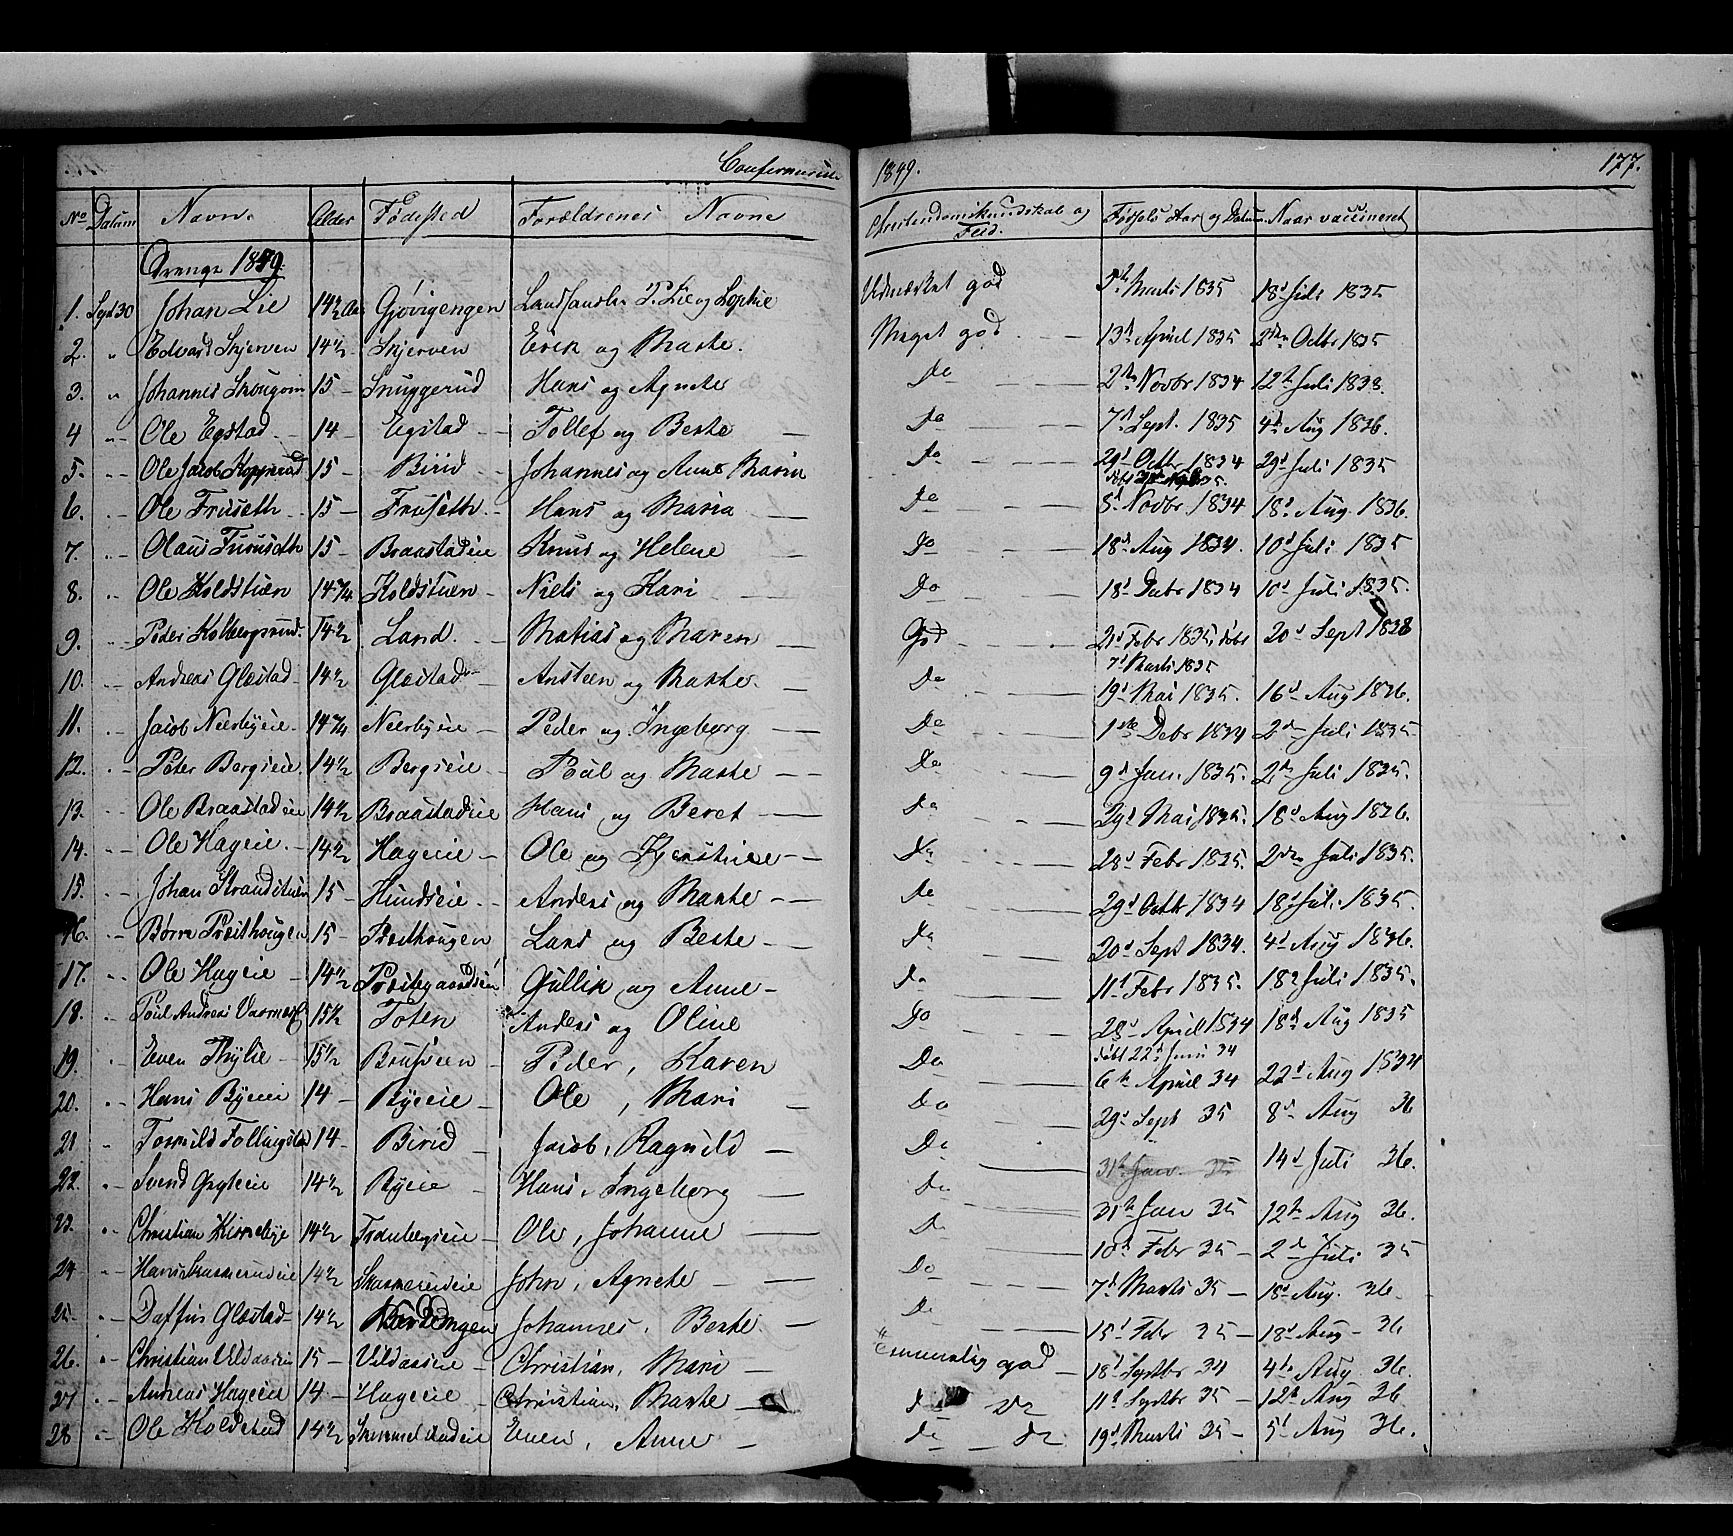 Confirmerede 1849. 177.
No Datum Navne Alder Fødested Forældrenes Navne Christendomskundskab og Flid. Fødsels Aar og Datum Naar vaccineret
Drenge 1849.
1. Sept 30 Johan Lie 14½ Aar Gjøvigengen Landhandler P. Lie og Sophie Udmærket god 5te Marti 1835 18d Juli 1835
2. " Edvard Skjerven 14½ Skjerven Erik og Marte. Meget god 13d April 1835 2den Octbr 1835
3. " Johannes 15 - Snuggerud Hans og Agnete Do 2den Novbr 1834 12te Juli 1838.
4 " Ole Egstad 14 - Egstad Tollef og Berte Do 7d Sept. 1835 4d Aug 1836.
5. " Ole Jacob 15 - Birid Johannes og Anne Maria Do 29d Octbr 1834 29d Juli 1835
6. " Ole Fruseth 15 - Fruseth Hans og Maria Do 5d Novbr 1834 18d Aug. 1836.
7. " Olaus Furuseth 15 - Braastadeie Knud og Helene Do 18d Aug 1834. 10d Juli 1835
8. " Ole Koldstuen 14¾ Koldstuen Niels og Kari Do 18d Decbr 1834 10d Juli 1835.
9. " Peder Kolbergsrud 14½ Land. Mathias og Maren God 21d Febr 1835, døbt 20d Sept 1838
7d Marti 1835
10. " Andreas Glæstad 14½ Glæstad Ansteen og Marte. Do 19d Mai 1835. 16d Aug 1836.
11. " Jacob Neerbyeie 14¾ Neerbyeie Peder og Ingeborg Do 1ste Debr 1834 2den Juli 1835.
12. " Peter Bergseie 14½ Bergseie Poul og Marte Do 9d Jan. 1835. 2den Juli 1835.
13. " Ole Braastadeie 14½ Braastadeie Hans og Beret Do 29d Mai 1835. 18d Aug 1836.
14. " Ole Hageie 14½ Hageie Ole og Kjerstine Do 28d Febr 1835. 2den Juli 1835.
15. " Johan Strandstuen 15 Hundseie Anders og Marte Do 29d Octbr 1834 18d Juli 1835.
16. " Børre Præsthougen 15 - Præsthougen Lars og Berte Do 20d Sept 1834. 4d Aug 1836.
17. " Ole Hageie 14½ Præstegaardseie Gullik og Anne Do 11d Febr 1835. 18d Juli 1835.
18. " Poul Andreas 15½ Toten Anders og Oline Do 28d April 1834 18d Aug 1835
døbt 22d Juni 34
19. " Even Thylie 15½ Brusveen Peder, Karen Do 6te April 34 22d Aug 1834
20. " Hans Byeie 14 - Byeie Ole, Mari Do 29d Sept 35 8d Aug 36
21 " Follingstad 14 - Birid Jacob, Ragnild Do 31te Jan. 35 14d Juli 36.
22. " Svend Grykeie 14½ Byeie Hans, Ingeborg Do 31te Jan 35 12te Aug 36.
23. " Christian Kirnebye 14½ Tranbergseie Ole, Johanne Do 10d Febr 35 - 2d Juli 35
24 " Hans Skarnerudeie 14½ Skarnerudeie John, Agnete Do 7d Marts 35 - 18d Aug. 36.
25. " Daffin Glæstad 14½ Johannes, Berte. Do 15d Febr 35 - 18d Aug - 36
26. " Christian Vildaaseie 15 - Vildaaseie Christian, Mari Temmelig god 18d Septbr 34 4de Aug 36.
27 " Andreas Hageie 14 - Hageie Christian, Marte do do 11d Septbr 35 - 12te Aug 36.
28 " Ole Koldstad 14½ Even, Anne do do 19d Marts 35 - 5d Aug 36.